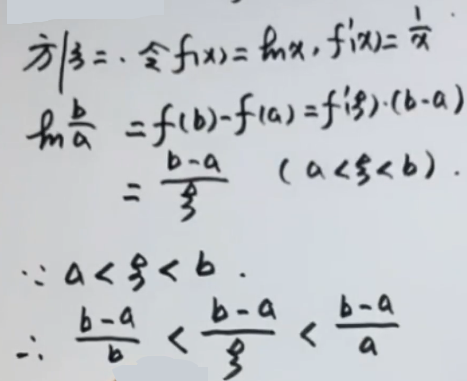 方法二. 令f(x)=lnx, f'(x)=1/x
ln b/a = f(b)-f(a)=f'(ξ)·(b-a)
= (b-a)/ξ (a<ξ<b).
∵ a<ξ<b.
∴ (b-a)/b < (b-a)/ξ < (b-a)/a